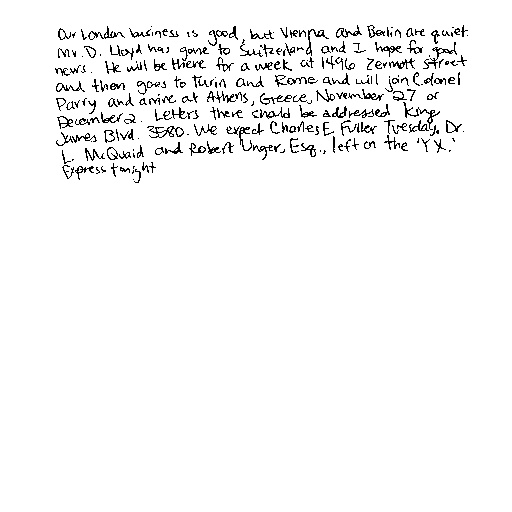 Our London business is good, but Vienna and Berlin are quiet.
Mr. D. Lloyd has gone to Switzerland and I hope for good
news. He will be there for a week at 1496 Zermott Street
and then goes to Turin and Rome and will join Colonel
Parry and arrive at Athens, Greece, November 27 or
December 2. Letters there should be addressed King
James Blvd. 3580. We expect Charles E. Fuller Tuesday. Dr.
L. McQuaid and Robert Unger, Esq., left on the 'Y.X.'
Express tonight